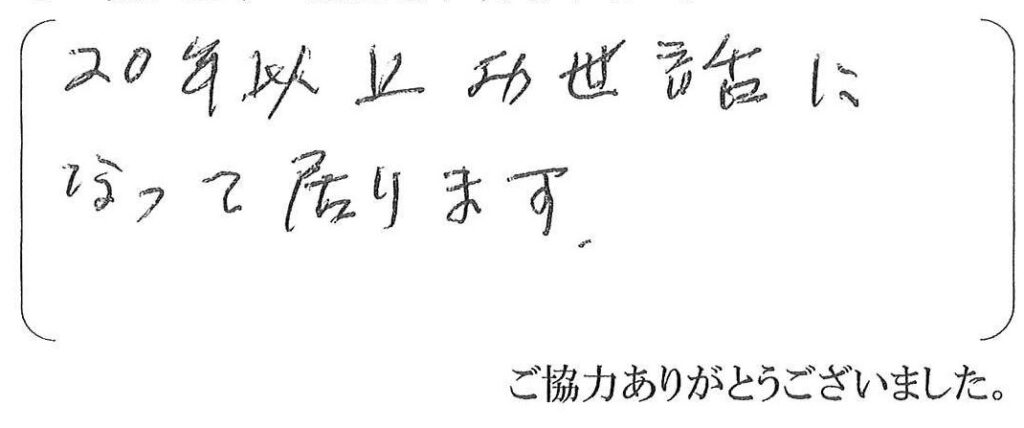 20年以上お世話に
なって居ります.
ご協力ありがとうございました。